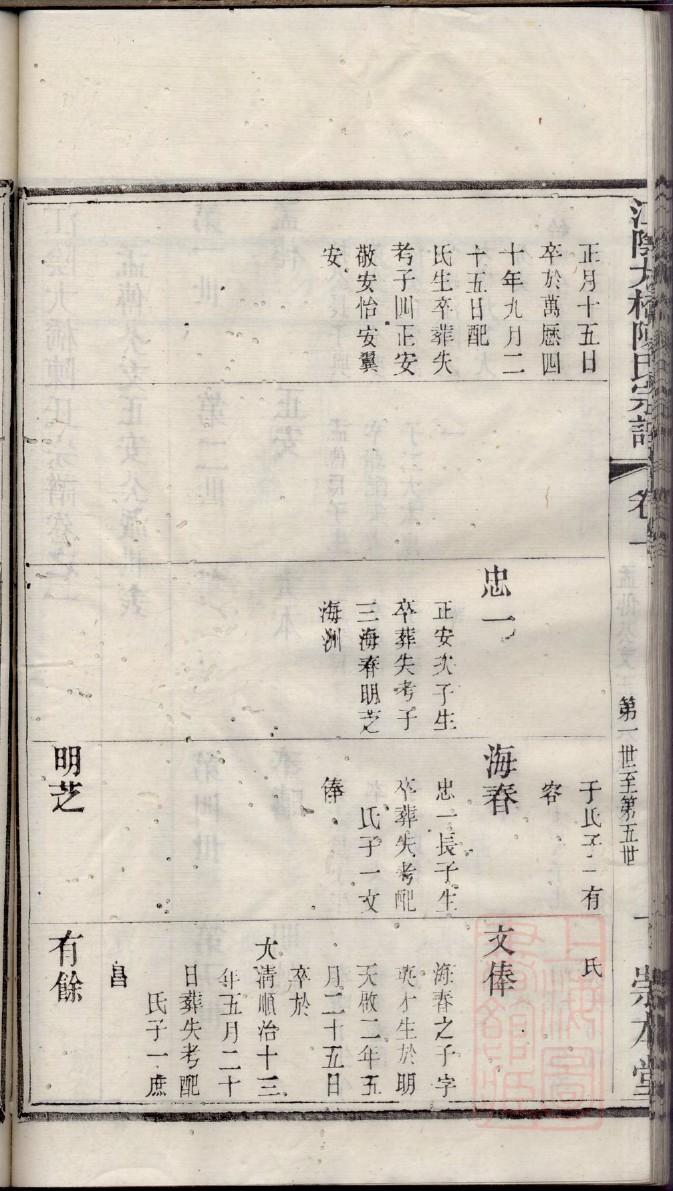 江陰大橋陳氏宗譜
卷一
第一世至第五世
崇本堂
正月十五日
卒於萬曆四
十年九月二
十五日配
氏生卒葬失
考子四正安
敬安怡安翼
安
忠一
正安次子生
卒葬失考子
三海春明芝
海洲
于氏子一有
容
海春
忠一長子生
卒葬失考配
氏子一文
俸
明芝
氏
文俸
海春之子字
英才生於明
天啟二年五
月二十五日
卒於
大清順治十三
年五月二十
日葬失考配
氏子一庶
昌
有餘